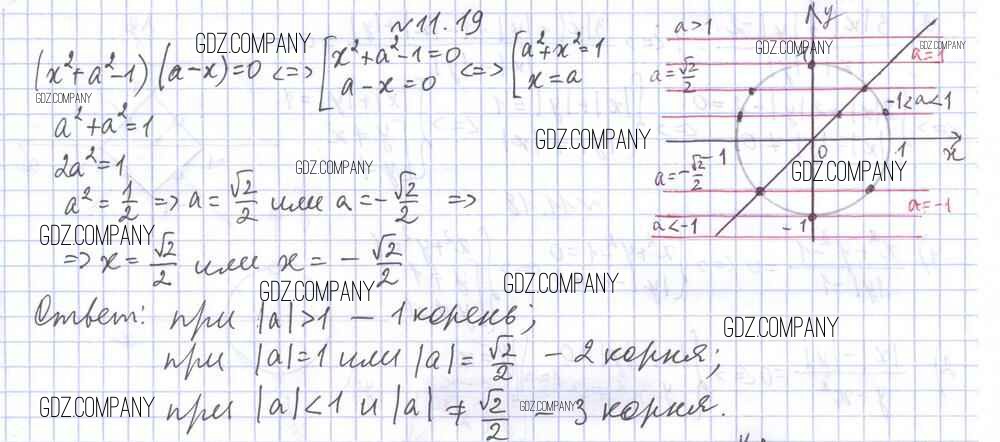 №11.19
(x²+a²-1)(a-x)=0 <=> [x²+a²-1=0 <=> [a²+x²=1
a-x=0 x=a
a²+a²=1
2a²=1
a²=1/2 => a=√2/2 или a=-√2/2 =>
=> x=√2/2 или x=-√2/2
Ответ: при |a|>1 - 1 корень;
при |a|=1 или |a|=√2/2 - 2 корня;
при |a|<1 и |a|≠√2/2 - 3 корня.
y
a>1
a=1
a=√2/2
-1<a<1
-1
0
1
x
a=-√2/2
a=-1
a<-1
-1
GDZ.COMPANY
GDZ.COMPANY
GDZ.COMPANY
GDZ.COMPANY
GDZ.COMPANY
GDZ.COMPANY
GDZ.COMPANY
GDZ.COMPANY
GDZ.COMPANY
GDZ.COMPANY
GDZ.COMPANY
GDZ.COMPANY
GDZ.COMPANY